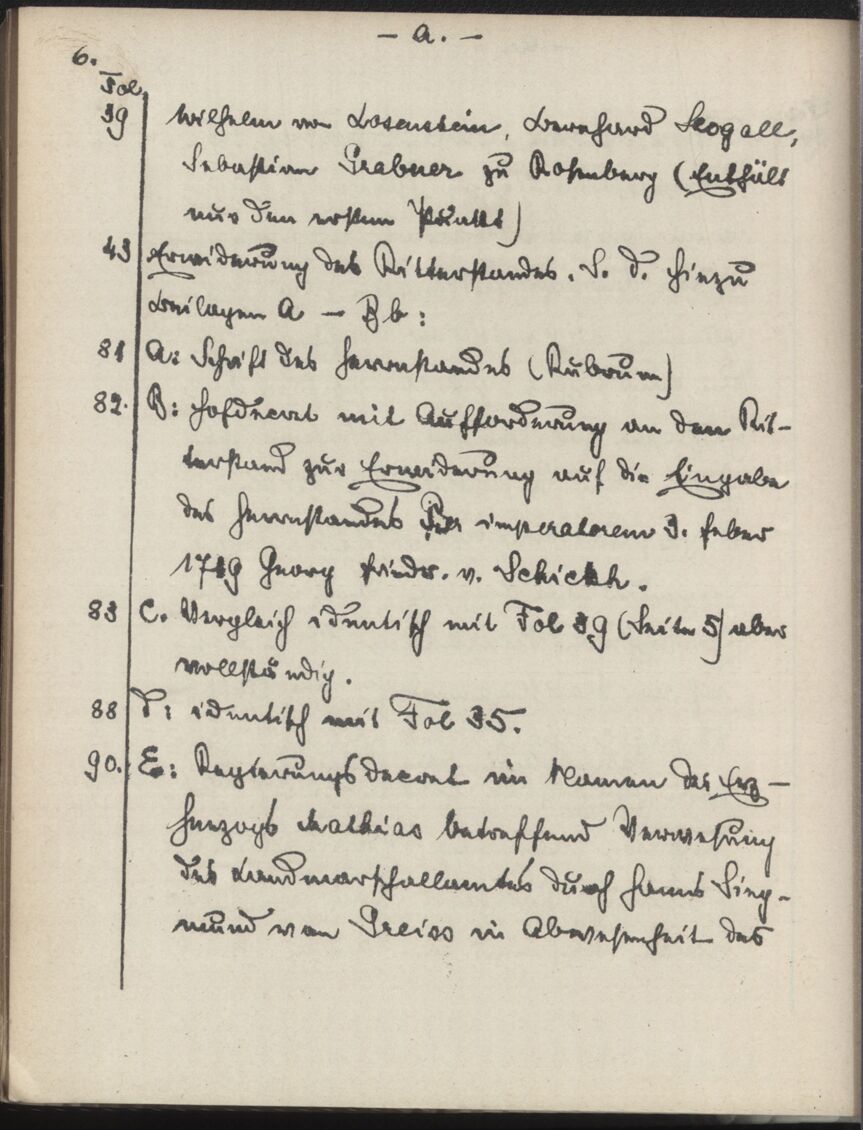 – A. –
6.
Fol.
39 Wilhelm von Losenstein, Bernhard Skogall,
Sebastian Grabner zu Rosenberg (Enthält
nur den ersten Punkt)
43 Erwiderung des Ritterstandes. S. d. Hiezu
Beilagen A – Bb:
81 A: Schrift des Herrnstandes (Rubrum)
82. B: Hofdecret mit Aufforderung an den Rit-
terstand zur Erwiderung auf die Eingabe
des Herrnstandes Per imperatorem 3. Feber
1719 Georg Friedr. v. Schickh.
83 C. Vergleich identisch mit Fol 39 (Seite 5) aber
vollständig.
88 D: identisch mit Fol 35.
90. E: Regierungsdecret im Namen des Erz-
herzogs Mathias betreffend Verwesung
des Landmarschallamtes durch Hanns Sieg-
mund von Greiss in Abwesenheit des